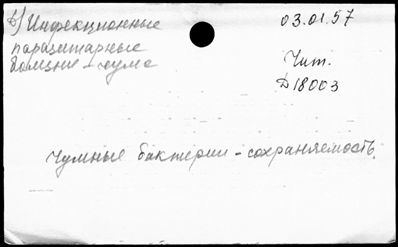 б) Инфекционные
паразитарные
болезни - чума
03.01.57
Чит.
Д 18003
Чумные бактерии - сохраняемость.